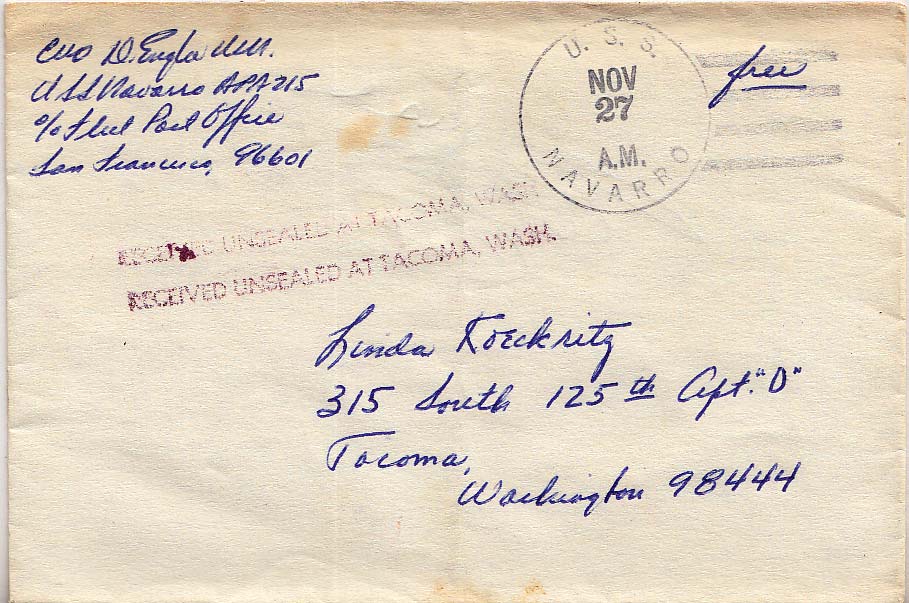 CWO D. Engla USN.
USS Navarro APA 215
c/o Fleet Post Office
San Francisco, 96601
U. S. S.
NOV
27
A.M.
NAVARRO
free
RECEIVED UNSEALED AT TACOMA, WASH.
RECEIVED UNSEALED AT TACOMA, WASH.
Linda Koeckritz
315 South 125th Apt. "D"
Tacoma,
Washington 98444